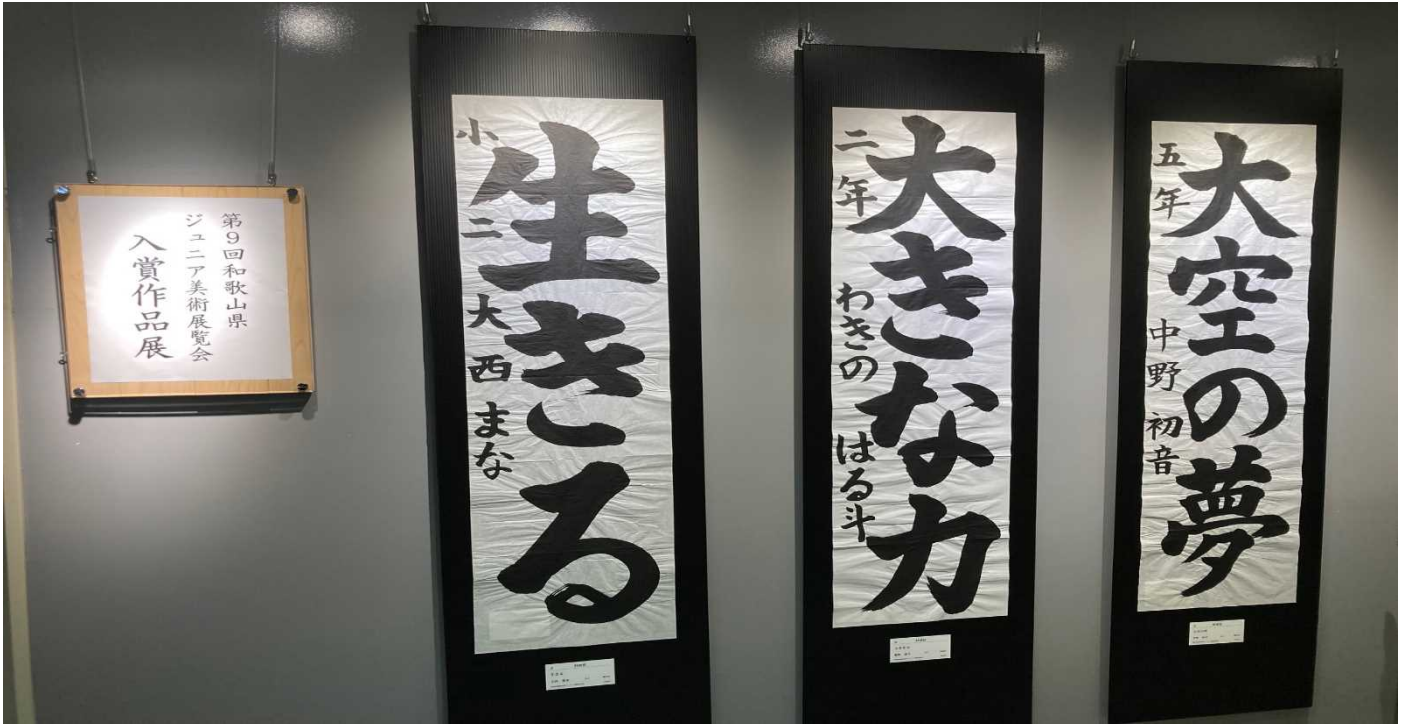 第9回和歌山県
ジュニア美術展覧会
入賞作品展
生きる
小二 大西まな
大きな力
二年 わきの はる斗
大空の夢
五年 中野 初音